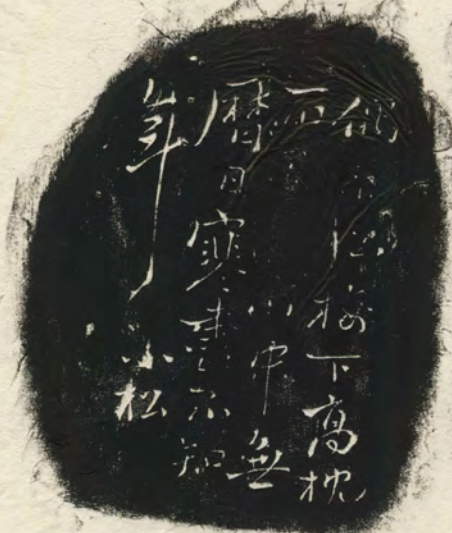 偶來松樹下高枕
石山中無
曆日寒盡不知
年小松